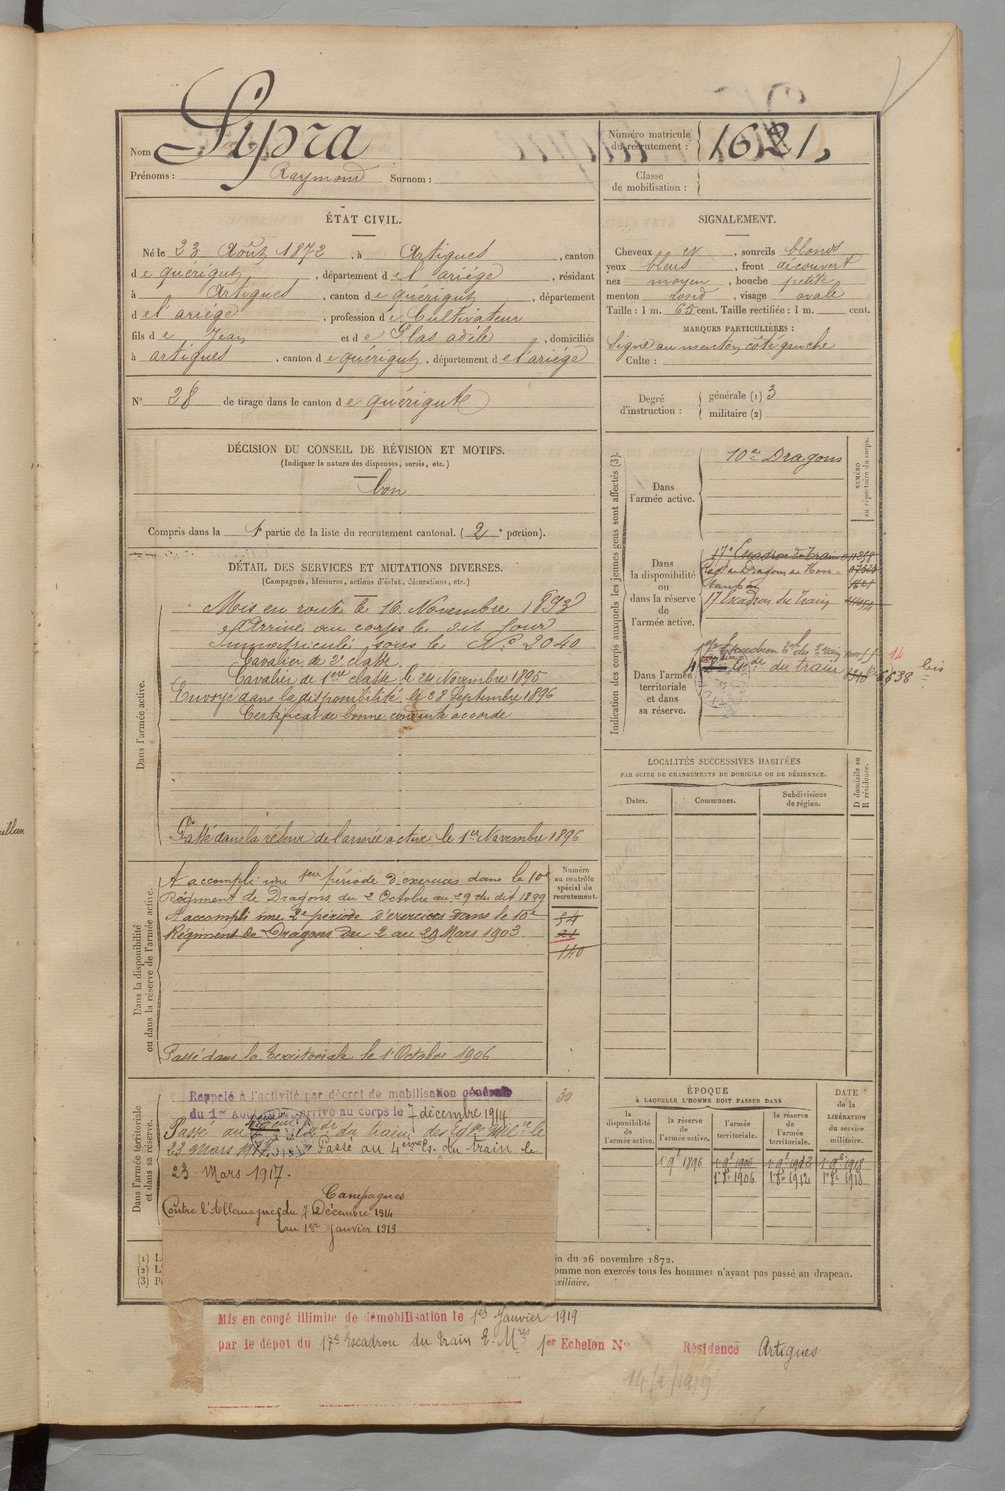 Nom Sipra
Prénoms : Raymond Surnom :
Numéro matricule du recrutement : 1621,
Classe de mobilisation :
ÉTAT CIVIL.
Né le 23 Août 1872, à Artigues, canton
de quérigut, département de l'ariége, résidant
à Artigues, canton de quérigut, département
de l'ariége, profession de Cultivateur
fils de Jean et de Glas adile, domiciliés
à artigues, canton de quérigut, département de l'ariége
N° 28 de tirage dans le canton de quérigut
SIGNALEMENT.
Cheveux et, sourcils blonds
yeux bleus, front découvert
nez moyen, bouche petite
menton rond, visage ovale
Taille : 1 m. 65 cent. Taille rectifiée : 1 m. cent.
MARQUES PARTICULIÈRES :
Signe au menton côté gauche
Culte :
Degré d'instruction : générale (1) 3
militaire (2)
DÉCISION DU CONSEIL DE RÉVISION ET MOTIFS.
(Indiquer la nature des dispenses, sursis, etc.)
bon
Compris dans la 1 partie de la liste du recrutement cantonal. (2e portion).
DÉTAIL DES SERVICES ET MUTATIONS DIVERSES.
(Campagnes, blessures, actions d'éclat, décorations, etc.)
Dans l'armée active.
Mis en route le 16 Novembre 1893
Arrivé au corps le dit jour
Immatriculé sous le N° 2040
Cavalier de 2e classe
Cavalier de 1ère classe le 24 Novembre 1895
Envoyé dans la disponibilité le 28 Septembre 1896
Certificat de bonne conduite accordé
Passé dans la réserve de l'armée active le 1er Novembre 1896
Dans la disponibilité ou dans la réserve de l'armée active.
A accompli une 1ere période d'exercices dans le 10e
Régiment de Dragons du 2 Octobre au 29 du dit 1899
A accompli une 2e période d'exercices dans le 10e
Régiment de Dragons du 2 au 29 Mars 1903.
Passé dans la territoriale le 1er Octobre 1906
Numéro au contrôle spécial du recrutement.
54
21
140
30
Dans l'armée territoriale et dans sa réserve.
Rappelé à l'activité par décret de mobilisation générale
du 1er Août 1914 arrivé au corps le 7 décembre 1914
23 Mars 1917. Passé au 4eme Es. du train le
23 Mars 1917.
Campagnes
Contre l'Allemagne, du 7 Décembre 1914
au 1er Janvier 1919
Mis en congé illimité de démobilisation le 1er Janvier 1919
par le dépôt du 17e Escadron du train E. Mres 1er Echelon N° Résidence Artigues
14/2/1919
Indication des corps auxquels les jeunes gens sont affectés (3).
NUMÉRO au répertoire du corps.
Dans l'armée active.
10e Dragons
Dans la disponibilité ou dans la réserve de l'armée active.
17e Escadron du train
17 Escadron du train
Dans l'armée territoriale et dans sa réserve.
14
6538 bis
LOCALITÉS SUCCESSIVES HABITÉES
PAR SUITE DE CHANGEMENTS DE DOMICILE OU DE RÉSIDENCE.
Dates. Communes. Subdivisions de région. D domicile ou R résidence.
ÉPOQUE
À LAQUELLE L'HOMME DOIT PASSER DANS
la disponibilité de l'armée active.
la réserve de l'armée active.
l'armée territoriale.
la réserve de l'armée territoriale.
DATE de la LIBÉRATION du service militaire.
1 9e 1896
1 8e 1906 1 8e 1912 1 8e 1918
(1) L
(2) L
(3) P
on du 26 novembre 1872.
omme non exercés tous les hommes n'ayant pas passé au drapeau.
uxiliaire.